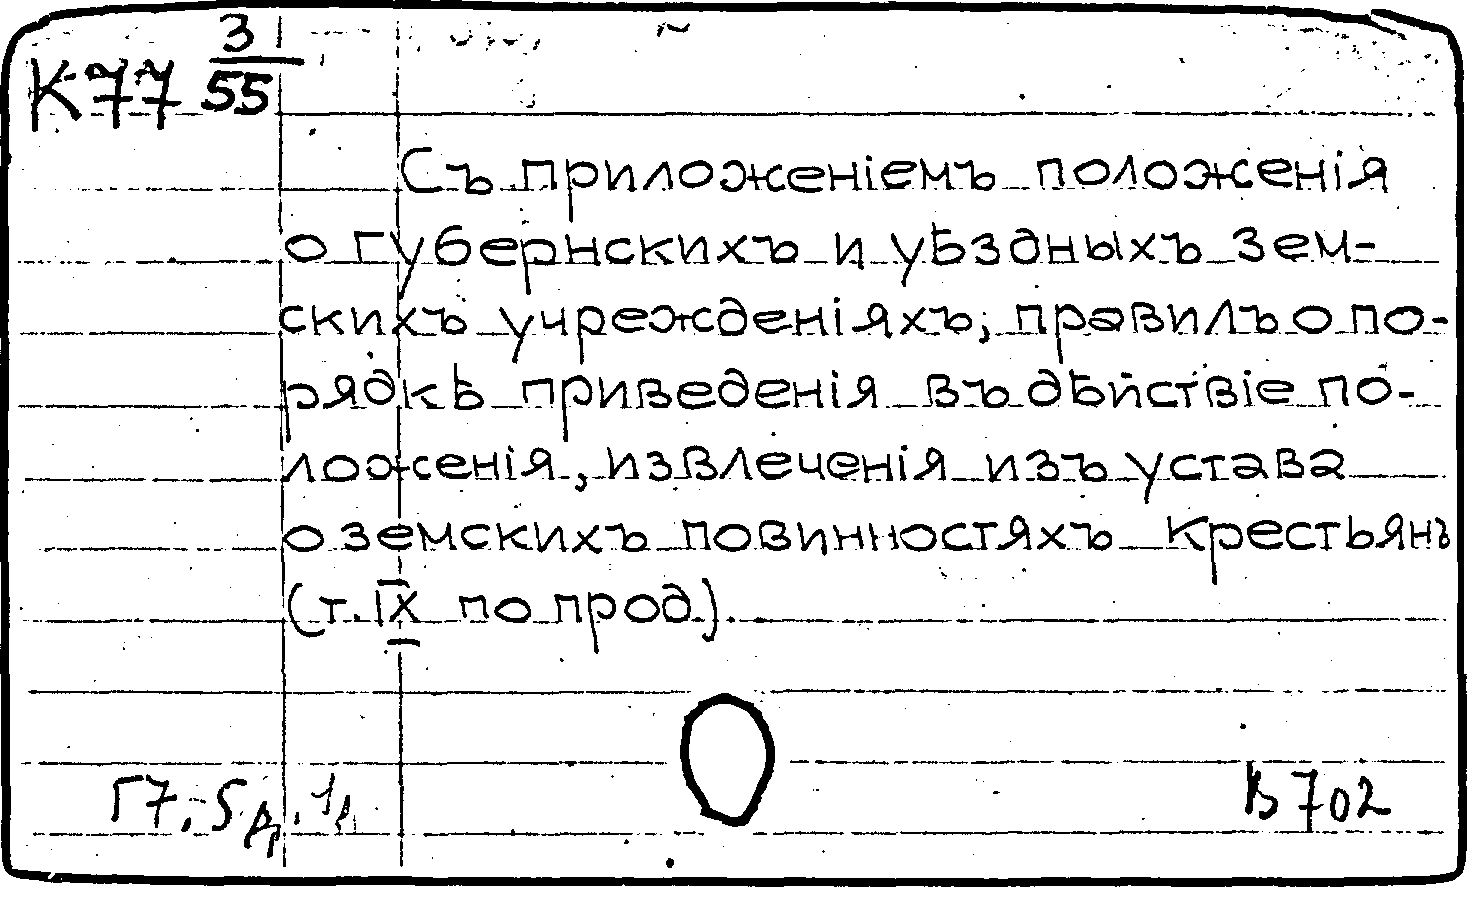 К77 3/55
Съ приложеніемъ положенія
о губернскихъ и уѣздныхъ зем-
скихъ учрежденіяхъ, правилъ о по-
рядкѣ приведенія въ дѣйствіе по-
ложенія, извлеченія изъ устава
о земскихъ повинностяхъ крестьянъ
(т. IX по прод.).
В 702